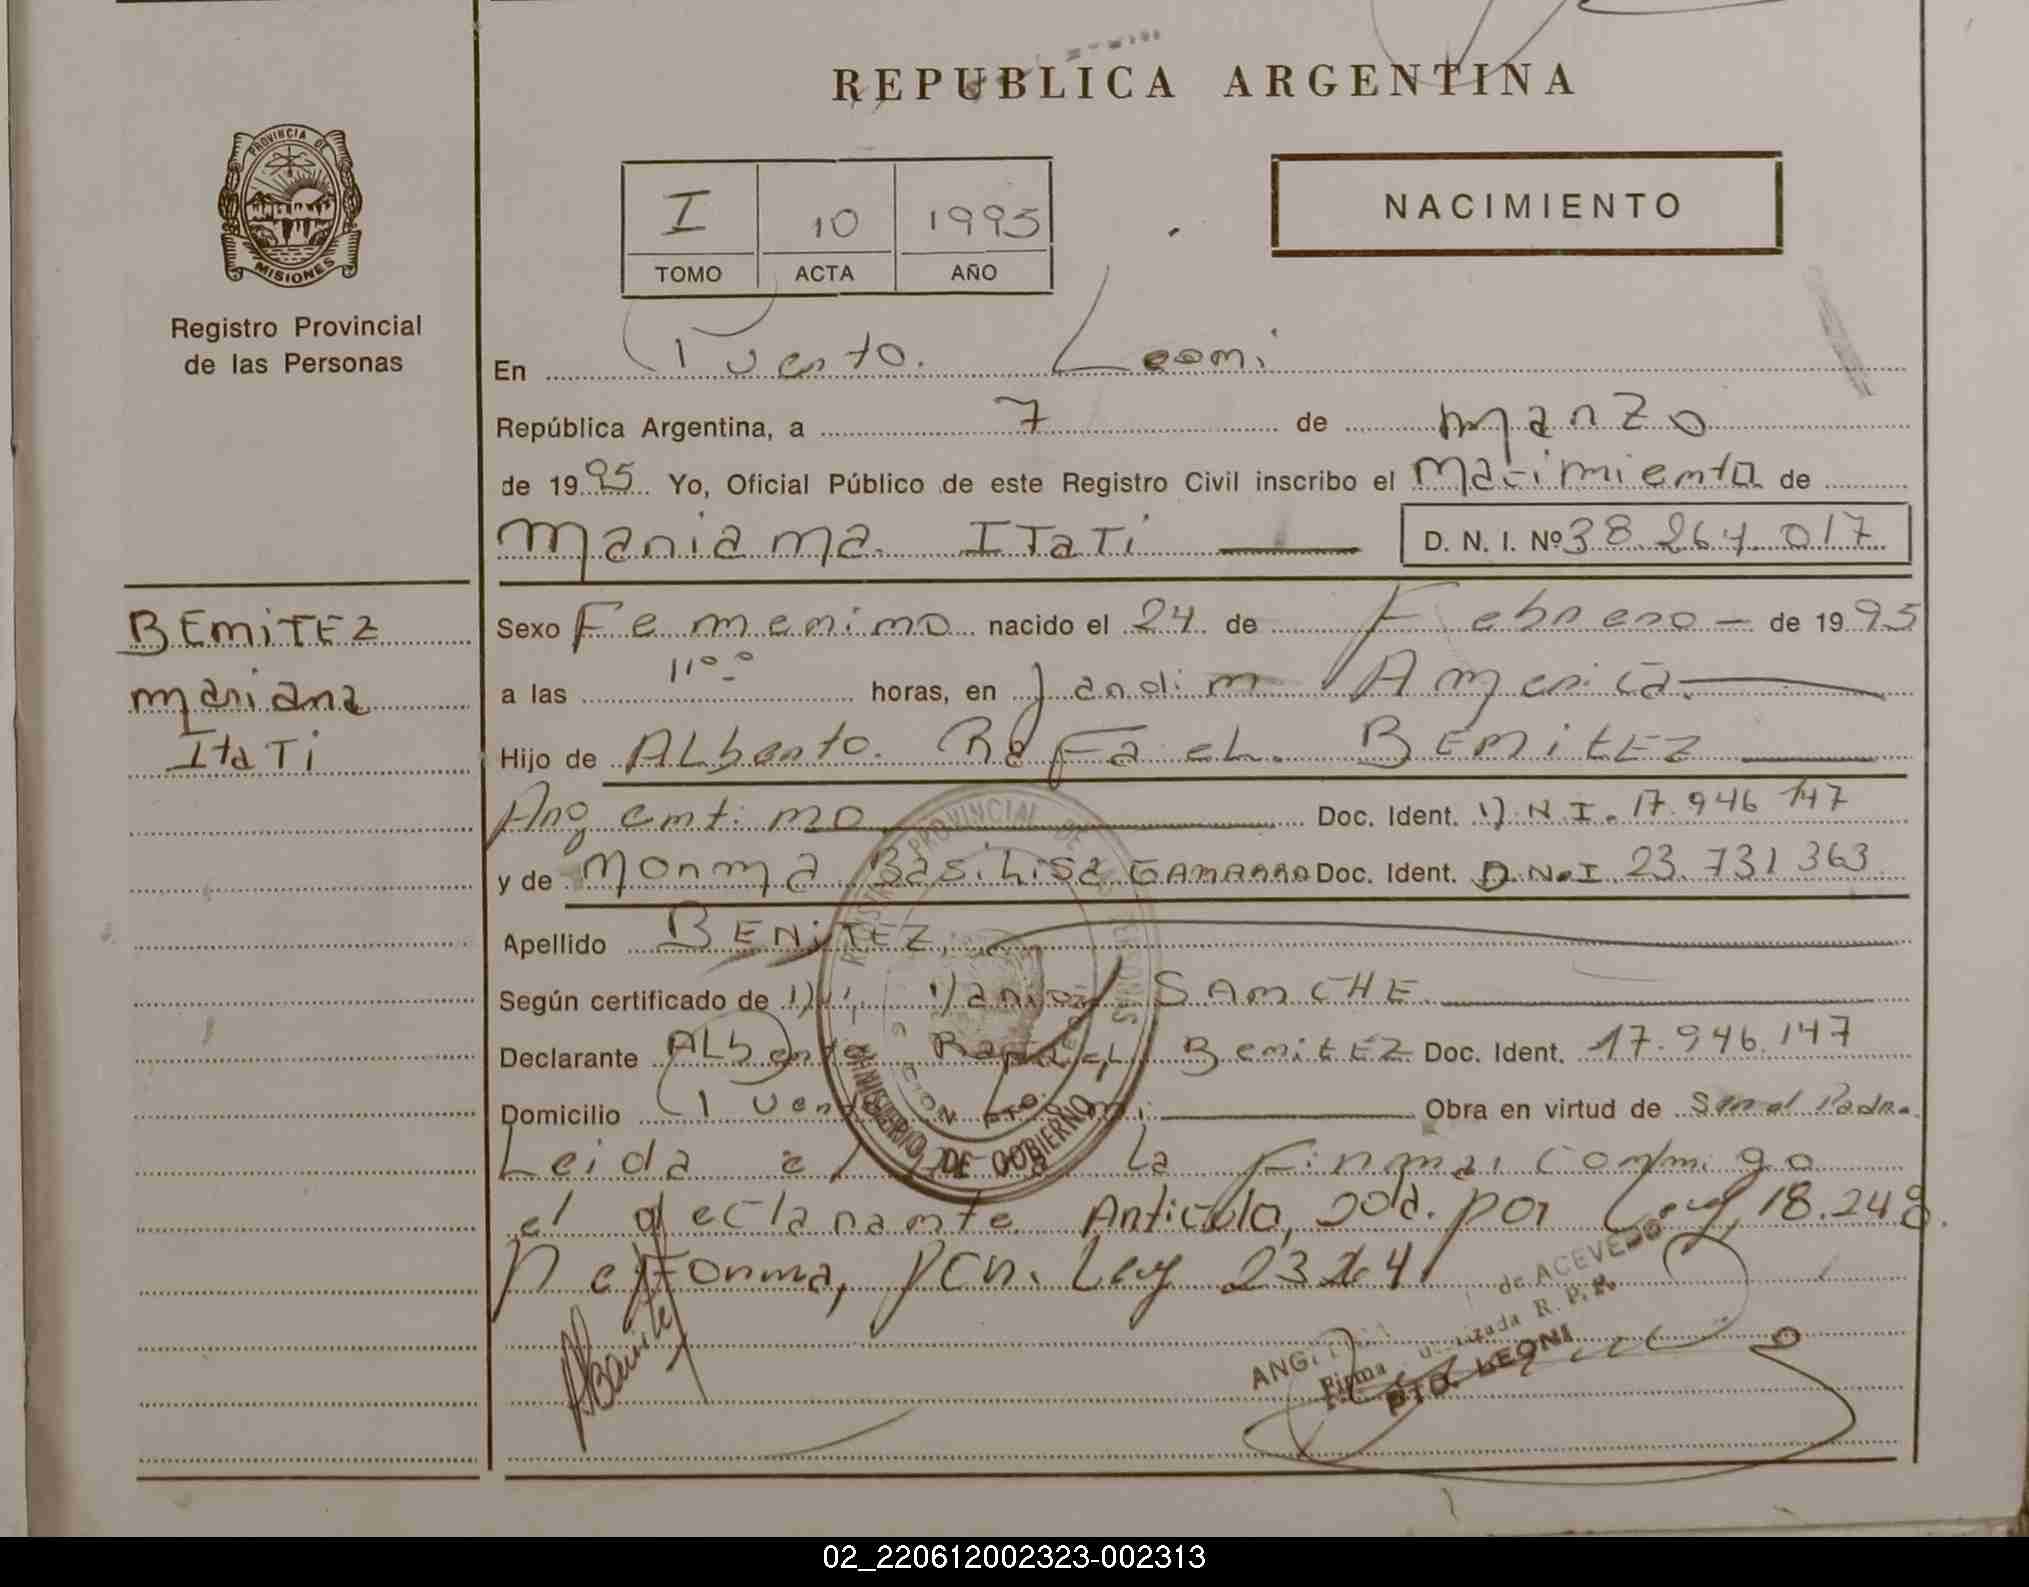 REPUBLICA ARGENTINA
PROVINCIA DE
MISIONES
Registro Provincial
de las Personas
I 10 1995
TOMO ACTA AÑO
NACIMIENTO
En Puerto Leoni
República Argentina, a 7 de Marzo
de 1995 Yo, Oficial Público de este Registro Civil inscribo el Nacimiento de
Mariana ITaTi D. N. I. Nº 38.264.017
BENiTEZ
Mariana
ItaTi
Sexo Femenino nacido el 24 de Febrero de 1995
a las 11º º horas, en Jardin America
Hijo de ALberto RaFaeL BENitEZ
Argentino Doc. Ident. D.N.I. 17.946 147
y de Norma BasiLisa GAMARRA Doc. Ident. D.N.I 23.731 363
Apellido BENiTEZ
Según certificado de SANCHE
Declarante ALberto RafaeL BenitEZ Doc. Ident. 17.946.147
Domicilio Puerto Obra en virtud de Ser el Padre
Leida el la Firma conmigo
el declarante Articulo por Ley 18.248
reforma, por Ley
REGISTRO PROVINCIAL DE LAS PERSONAS
MINISTERIO DE GOBIERNO
de ACEVEDO
Firma R. P. P.
PTO. LEONI
02_220612002323-002313